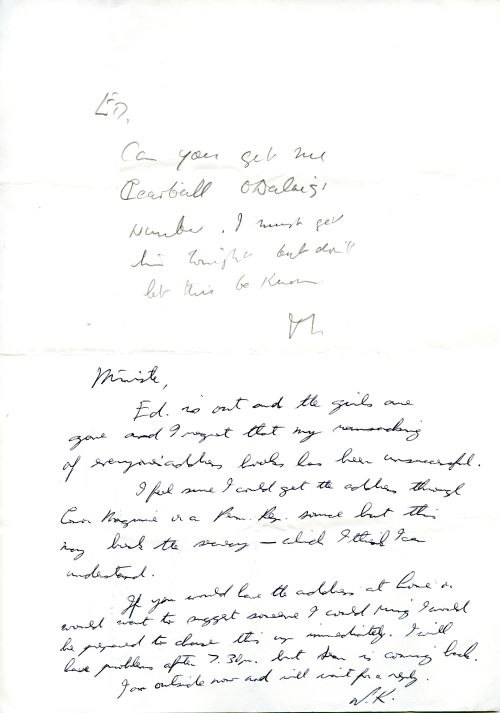 ED,
Can you get me
Cearball ODalaigs
Number. I must get
him tonight but don't
let this be known.
Minister,
Ed. is out and the girls are
gone and I regret that my ransacking
of everyone's address books has been unsuccessful.
I feel sure I could get the address through
Conor Maguire or a Pres. source but this
may break the secrecy — which I think I can
understand.
If you would have the address at home or
would want to suggest someone I could ring I would
be prepared to chase this up immediately. I will
have problems after 7.30pm. but is coming back.
I am outside now and will wait for a reply.
W.K.